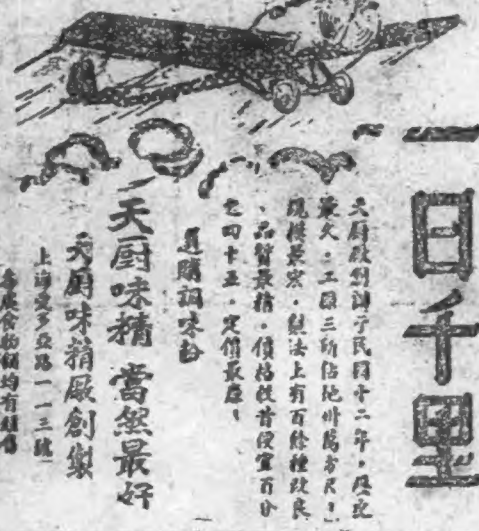 一日千里
天厨廠創辦于民國十二年，歷史
最久，工廠三所佔地卅萬方尺，
規模最宏，製法上有百餘種改良
，品質最精，價格較昔便宜百分
之四十五，定價最廉，
選購調味粉
天厨味精 當然最好
天厨味精廠創製
上海愛多亞路一一三號
各處食物號均有經售